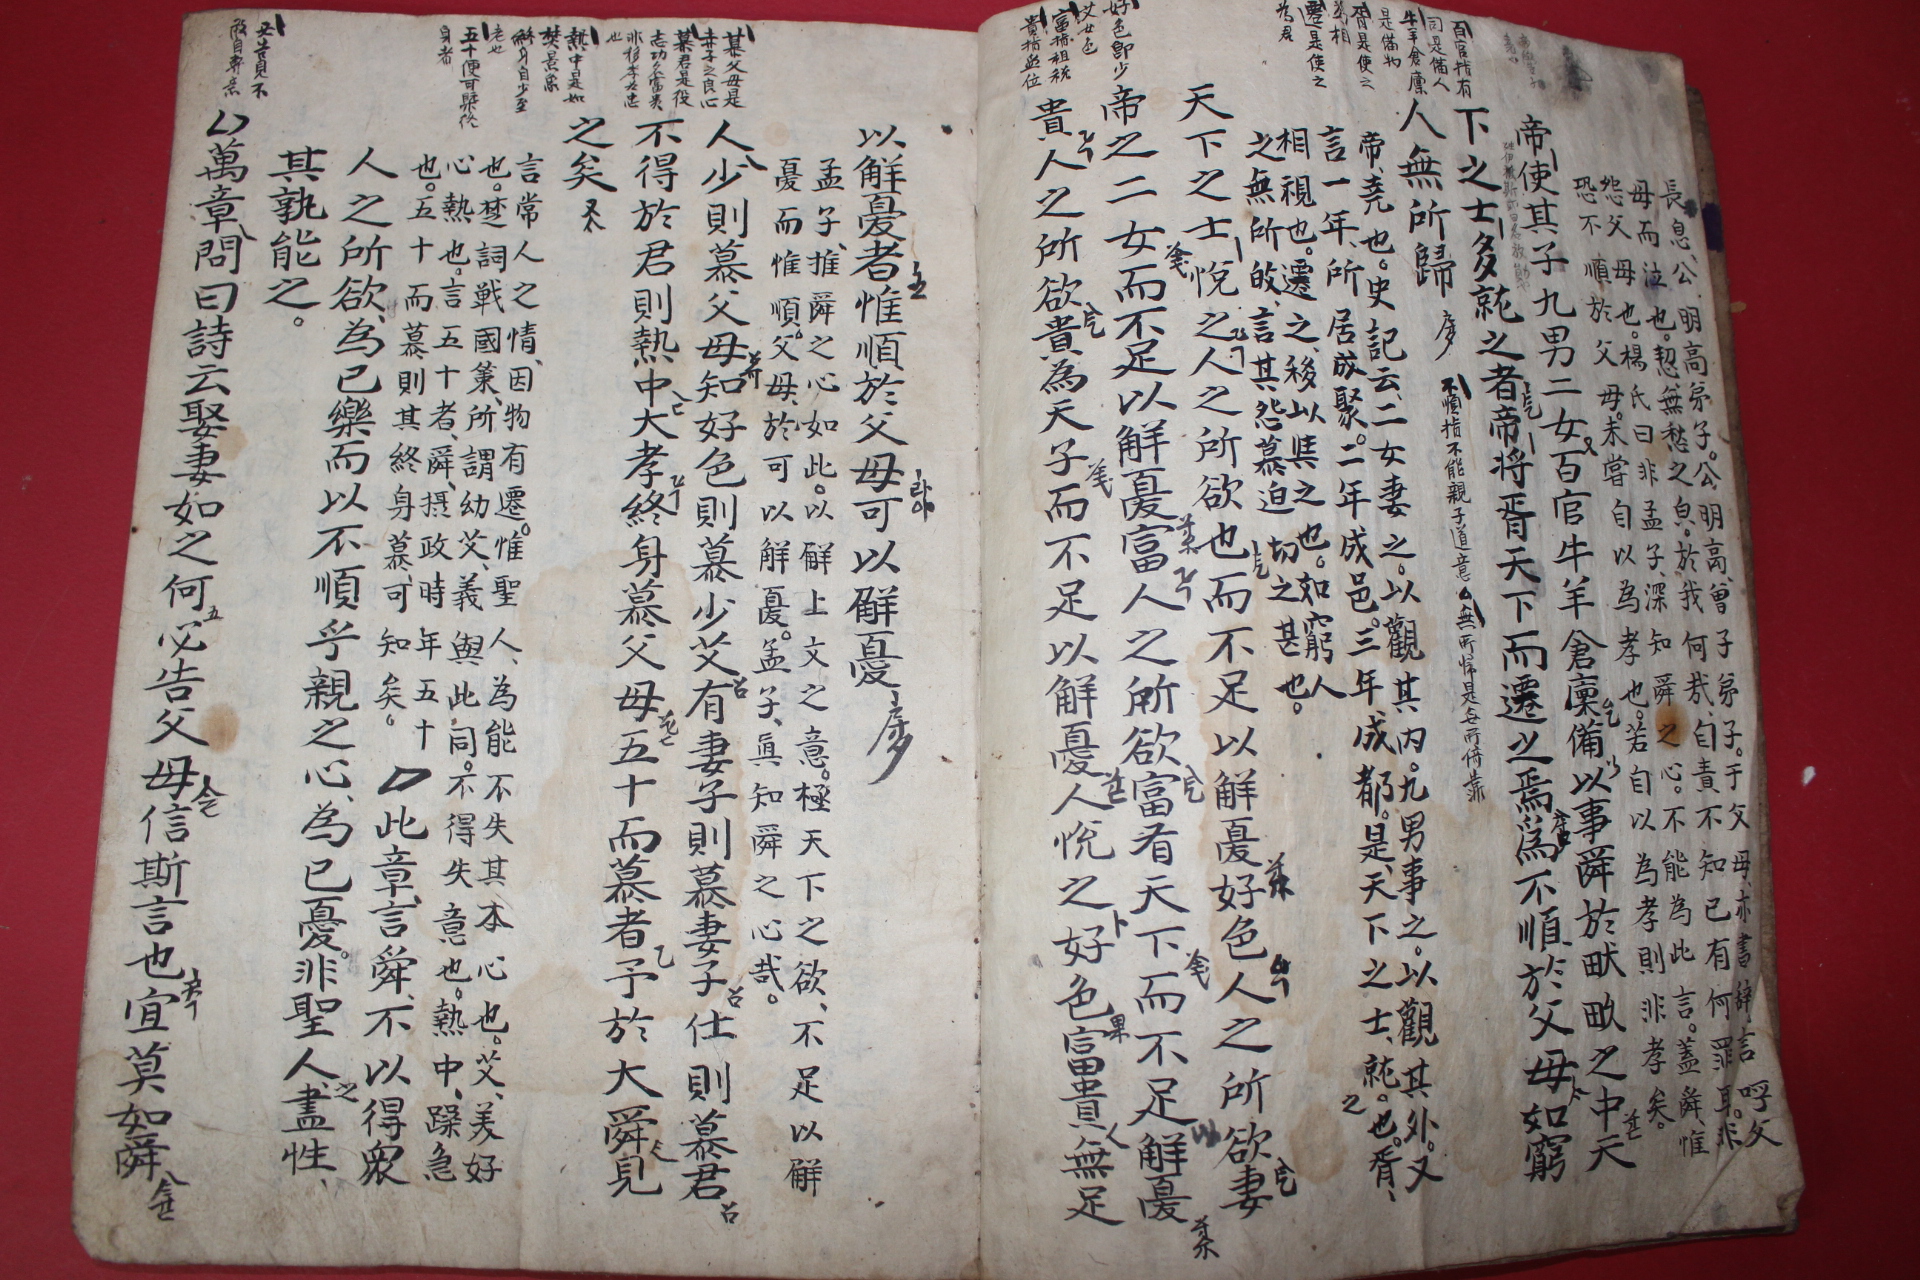 百官指有
司是備人
牛羊倉廩
是備物
胥是使之
遷是使之
為君
好色即少
艾女色
貴指盡位
長息公明高弟子。公明高、曾子弟子。于父母、亦書辭、言呼父
母而泣也。恝無愁之皃。於我何哉、自責不知已有何罪耳。非
怨父母也。楊氏曰非孟子、深知舜之心。不能為此言。蓋舜、惟
恐不順於父母。未嘗自以為孝也。若自以為孝則非孝矣。
帝使其子九男二女百官牛羊倉廩備以事舜於畎畝之中天
下之士多就之者帝將胥天下而遷之焉爲不順於父母如窮
人無所歸
不順指不能親子道意 無所歸是無所倚靠
帝堯也。史記云、二女妻之。以觀其內。九男事之。以觀其外。又
言一年、所居成聚。二年成邑。三年、成都。是天下之士、就之也。胥、
相視也。遷之、移以與之也。如窮人
之無所歸、言其怨慕迫切之甚也。
天下之士悅之人之所欲也而不足以解憂好色人之所欲妻
帝之二女而不足以解憂富人之所欲富有天下而不足解憂
貴人之所欲貴為天子而不足以解憂人悅之好色富貴無足
慕父母是
赤子之良心
慕君是役
志功名富貴
非移孝為忠
也
熱中是如
焚景象
終身自少至
老也
五十便可槩終
身者
以解憂者惟順於父母可以解憂
孟子、推舜之心如此。以解上文之意。極天下之欲、不足以解
憂而惟順父母、於可以解憂。孟子、眞知舜之心哉。
人少則慕父母知好色則慕少艾有妻子則慕妻子仕則慕君
不得於君則熱中大孝終身慕父母五十而慕者予於大舜見
之矣
言常人之情、因物有遷。惟聖人、為能不失其本心也。艾、美好
也。楚詞戰國策、所謂幼艾、義與此同。不得失意也。熱中、躁急
心熱也。言五十者、舜、摂政時年五十
也。五十而慕則其終身慕、可知矣。
此章、言舜、不以得衆
人之所欲、為已樂而以不順乎親之心、為已憂。非聖人盡性、
其孰能之。
萬章問曰詩云娶妻如之何必告父母信斯言也宜莫如舜